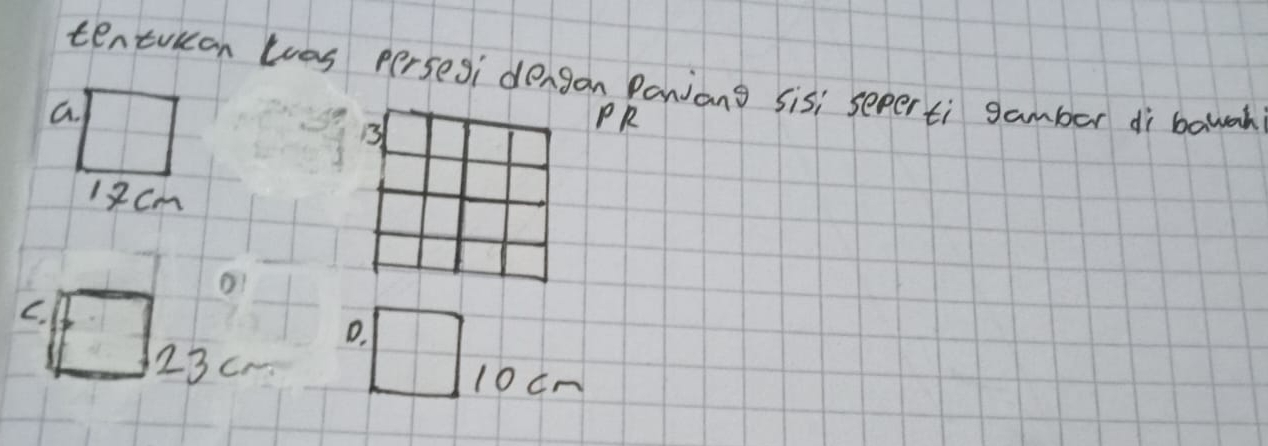 tentukan Luas Persegi dengan Panjang sisi seperti gambar di bawah i
PR
a.
17 cm
B
C.
23 cm
D.
10 cm